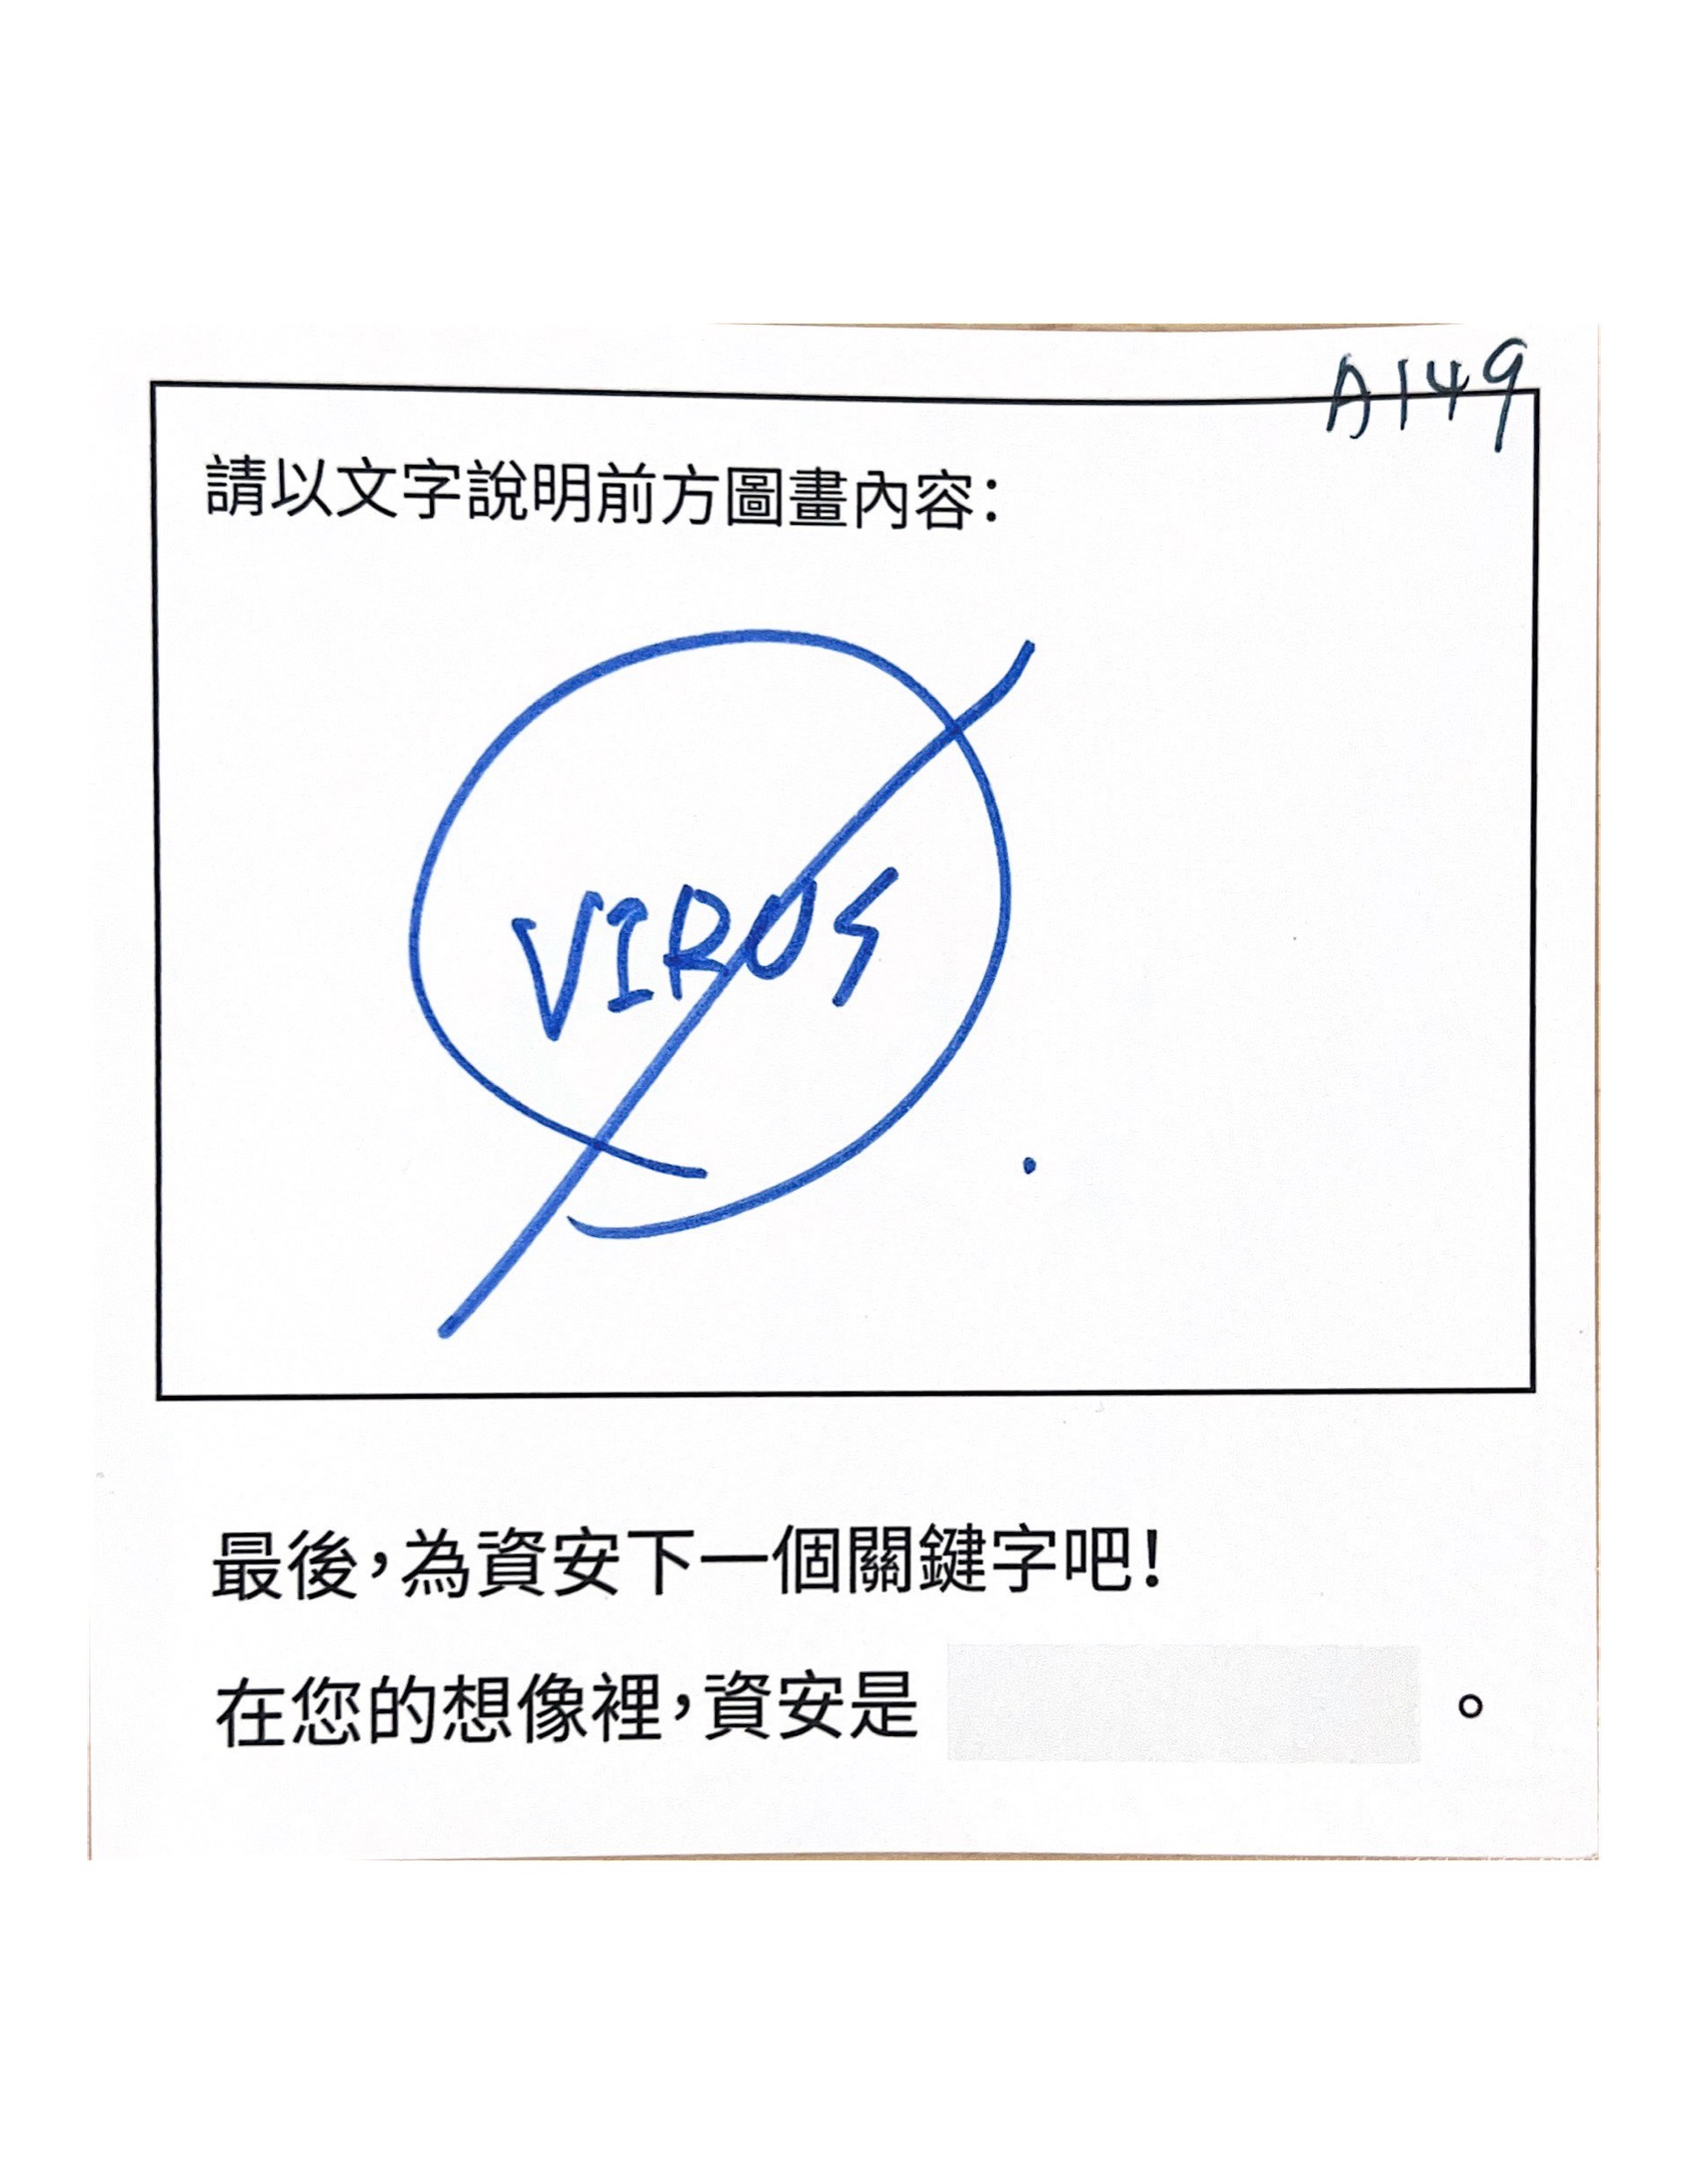 A149
請以文字說明前方圖畫內容：
VIRUS
最後，為資安下一個關鍵字吧！
在您的想像裡，資安是 。